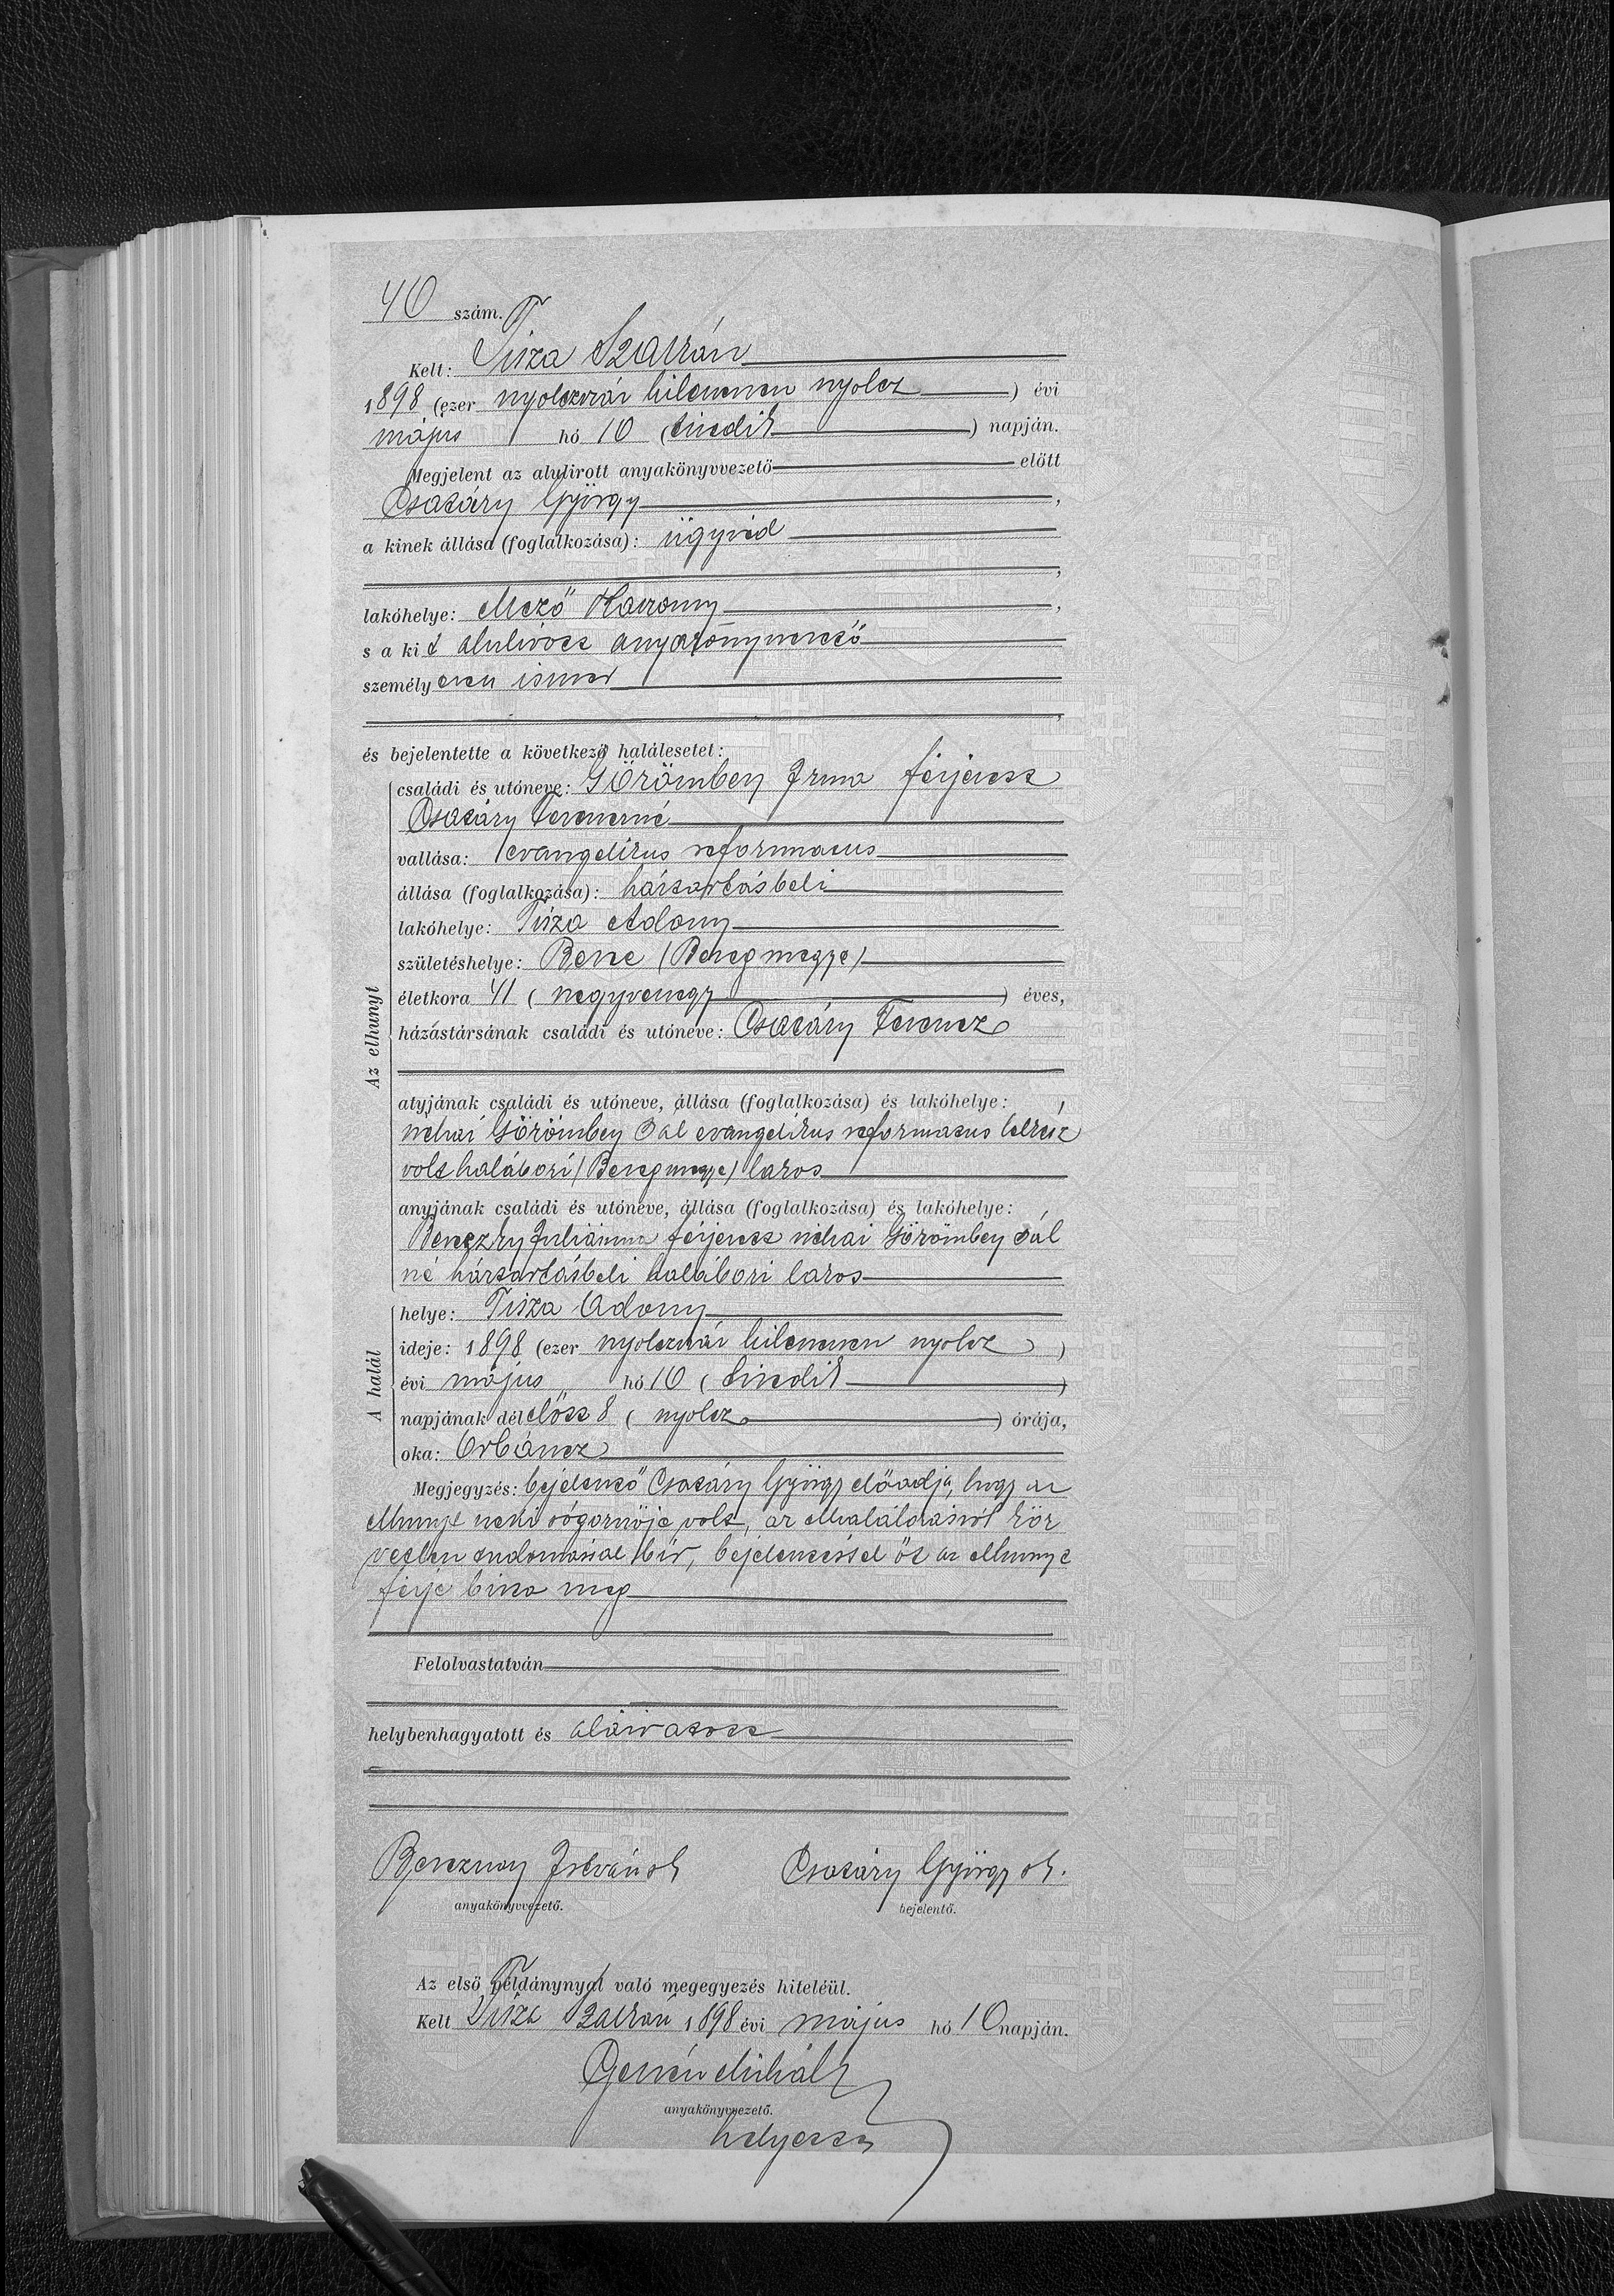 40 szám.
Kelt: Tisza Szalkán
1898 (ezer nyolczszáz kilenczven nyolcz) évi
május hó 10 (tizedik) napján.
Megjelent az alulirott anyakönyvvezető előtt
Csatáry György,
a kinek állása (foglalkozása): ügyvéd
,
lakóhelye: Mező Kaszony,
s a kit alulirott anyakönyvvezető
személyesen ismer
,
és bejelentette a következő halálesetet:
Az elhunyt
családi és utóneve: Görömbey Irma férjezett
Csatáry Ferenczné
vallása: evangelikus reformatus
állása (foglalkozása): háztartásbeli
lakóhelye: Tisza Adony
születéshelye: Bene (Beregmegye)
életkora 41 (negyvenegy) éves,
házastársának családi és utóneve: Csatáry Ferencz
atyjának családi és utóneve, állása (foglalkozása) és lakóhelye:
néhai Görömbey Pál evangelikus reformatus lelkész
volt halábori (Beregmegye) lakos
anyjának családi és utóneve, állása (foglalkozása) és lakóhelye:
Julianna férjezett néhai Görömbey Pál
né háztartásbeli halábori lakos
A halál
helye: Tisza Adony
ideje: 1898 (ezer nyolczszáz kilenczven nyolcz)
évi május hó 10 (tizedik)
napjának délelőtt 8 (nyolcz) órája,
oka: Orbáncz
Megjegyzés: bejelentő Csatáry György előadja, hogy az
elhunyt neki sógornője volt, az elhalálozásról köz
vetlen tudomással bir, bejelentéssel őt az elhunyt
férje bizta meg
Felolvastatván
helybenhagyatott és aláiratott
Bereznay István sk
anyakönyvvezető.
Csatáry György sk.
bejelentő.
Az első példánynyal való megegyezés hiteléül.
Kelt Tisza Szalkán 1898 évi május hó 10 napján.
Mihály
anyakönyvvezető.
helyettes